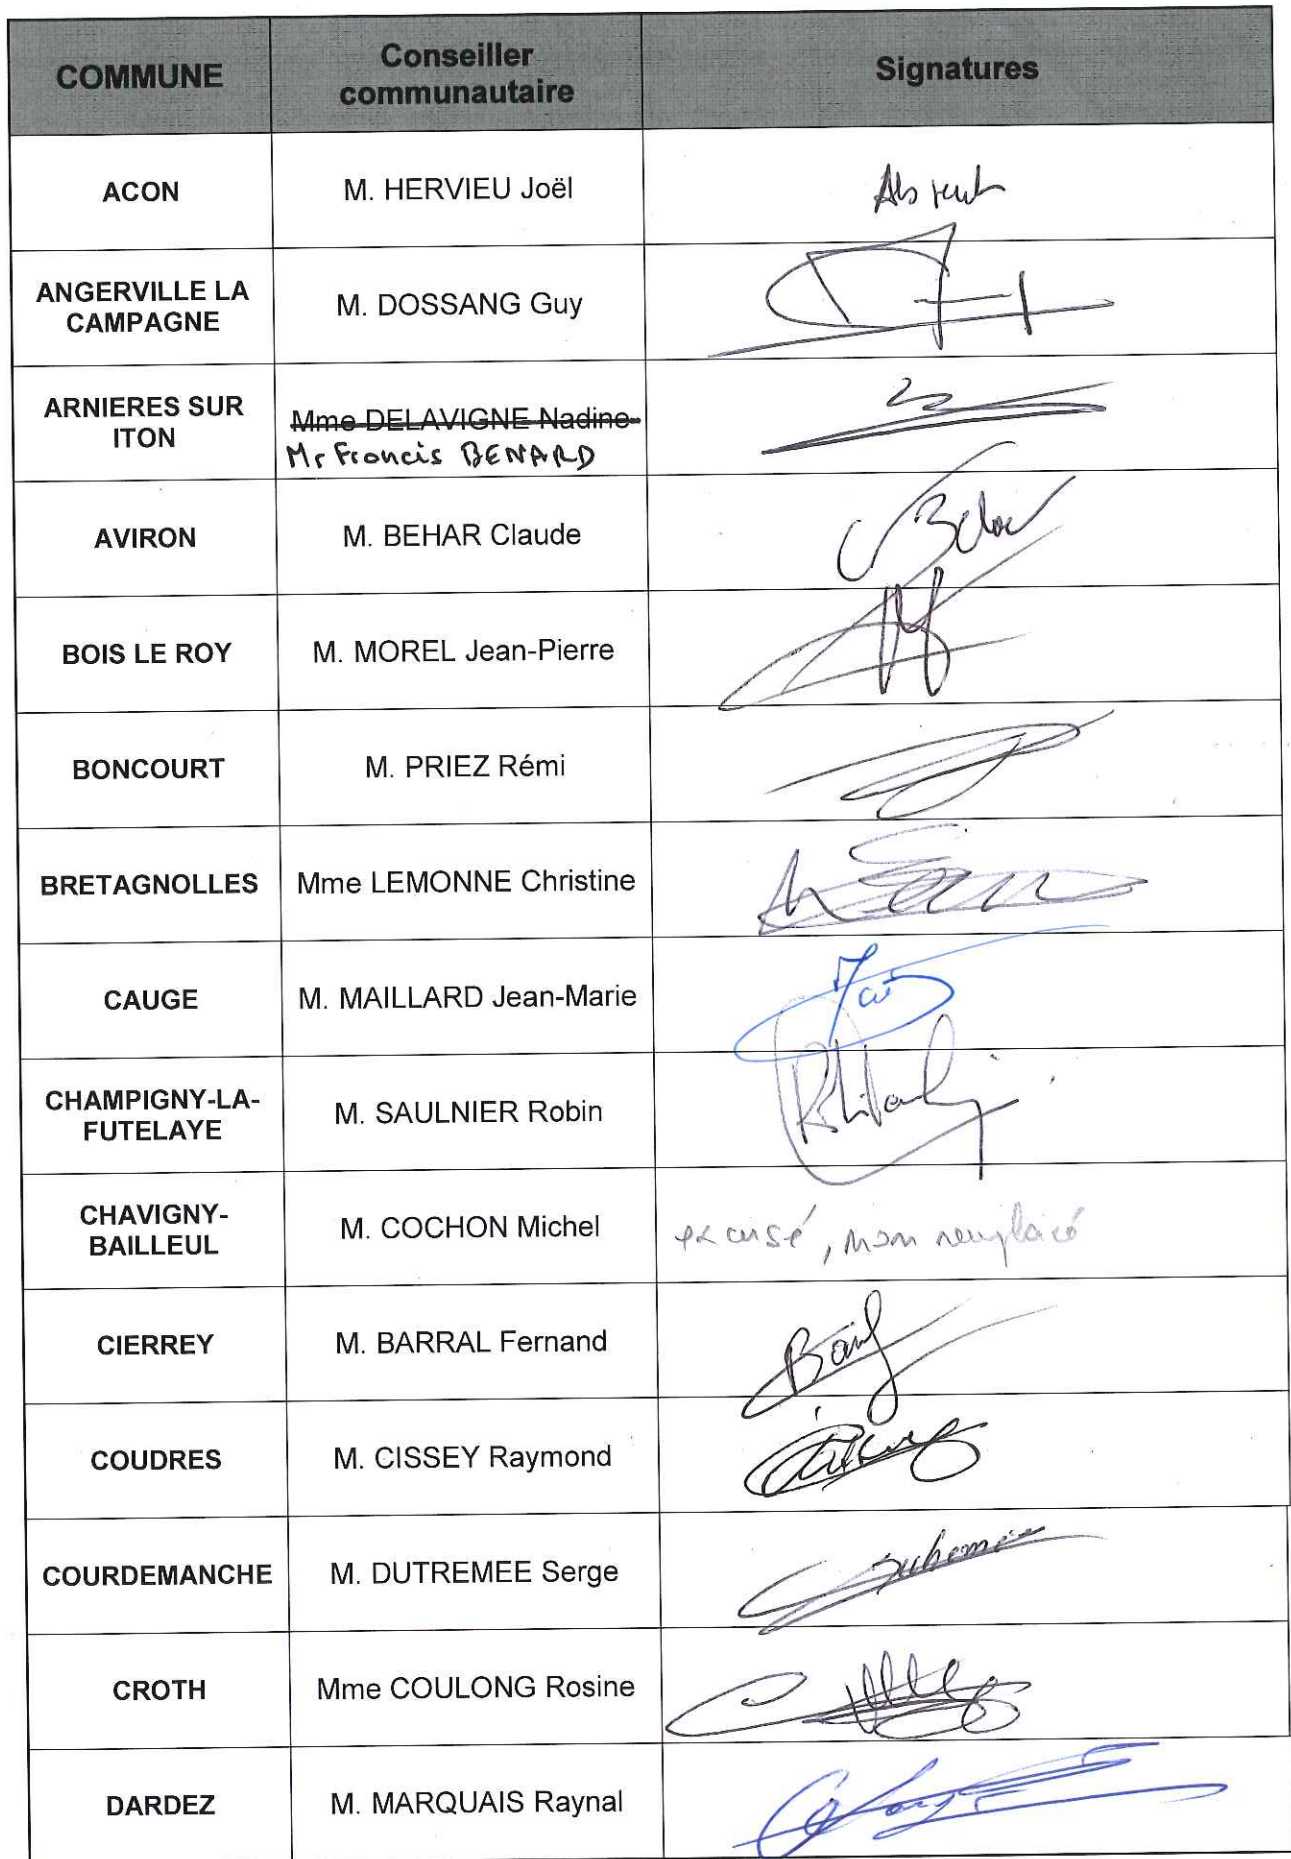 COMMUNE
Conseiller
communautaire
Signatures
ACON
M. HERVIEU Joël
Absent
ANGERVILLE LA
CAMPAGNE
M. DOSSANG Guy
ARNIERES SUR
ITON
Mme DELAVIGNE Nadine
Mr Francis BENARD
AVIRON
M. BEHAR Claude
BOIS LE ROY
M. MOREL Jean-Pierre
BONCOURT
M. PRIEZ Rémi
BRETAGNOLLES
Mme LEMONNE Christine
CAUGE
M. MAILLARD Jean-Marie
CHAMPIGNY-LA-
FUTELAYE
M. SAULNIER Robin
CHAVIGNY-
BAILLEUL
M. COCHON Michel
excusé, non remplacé
CIERREY
M. BARRAL Fernand
COUDRES
M. CISSEY Raymond
COURDEMANCHE
M. DUTREMEE Serge
CROTH
Mme COULONG Rosine
DARDEZ
M. MARQUAIS Raynal